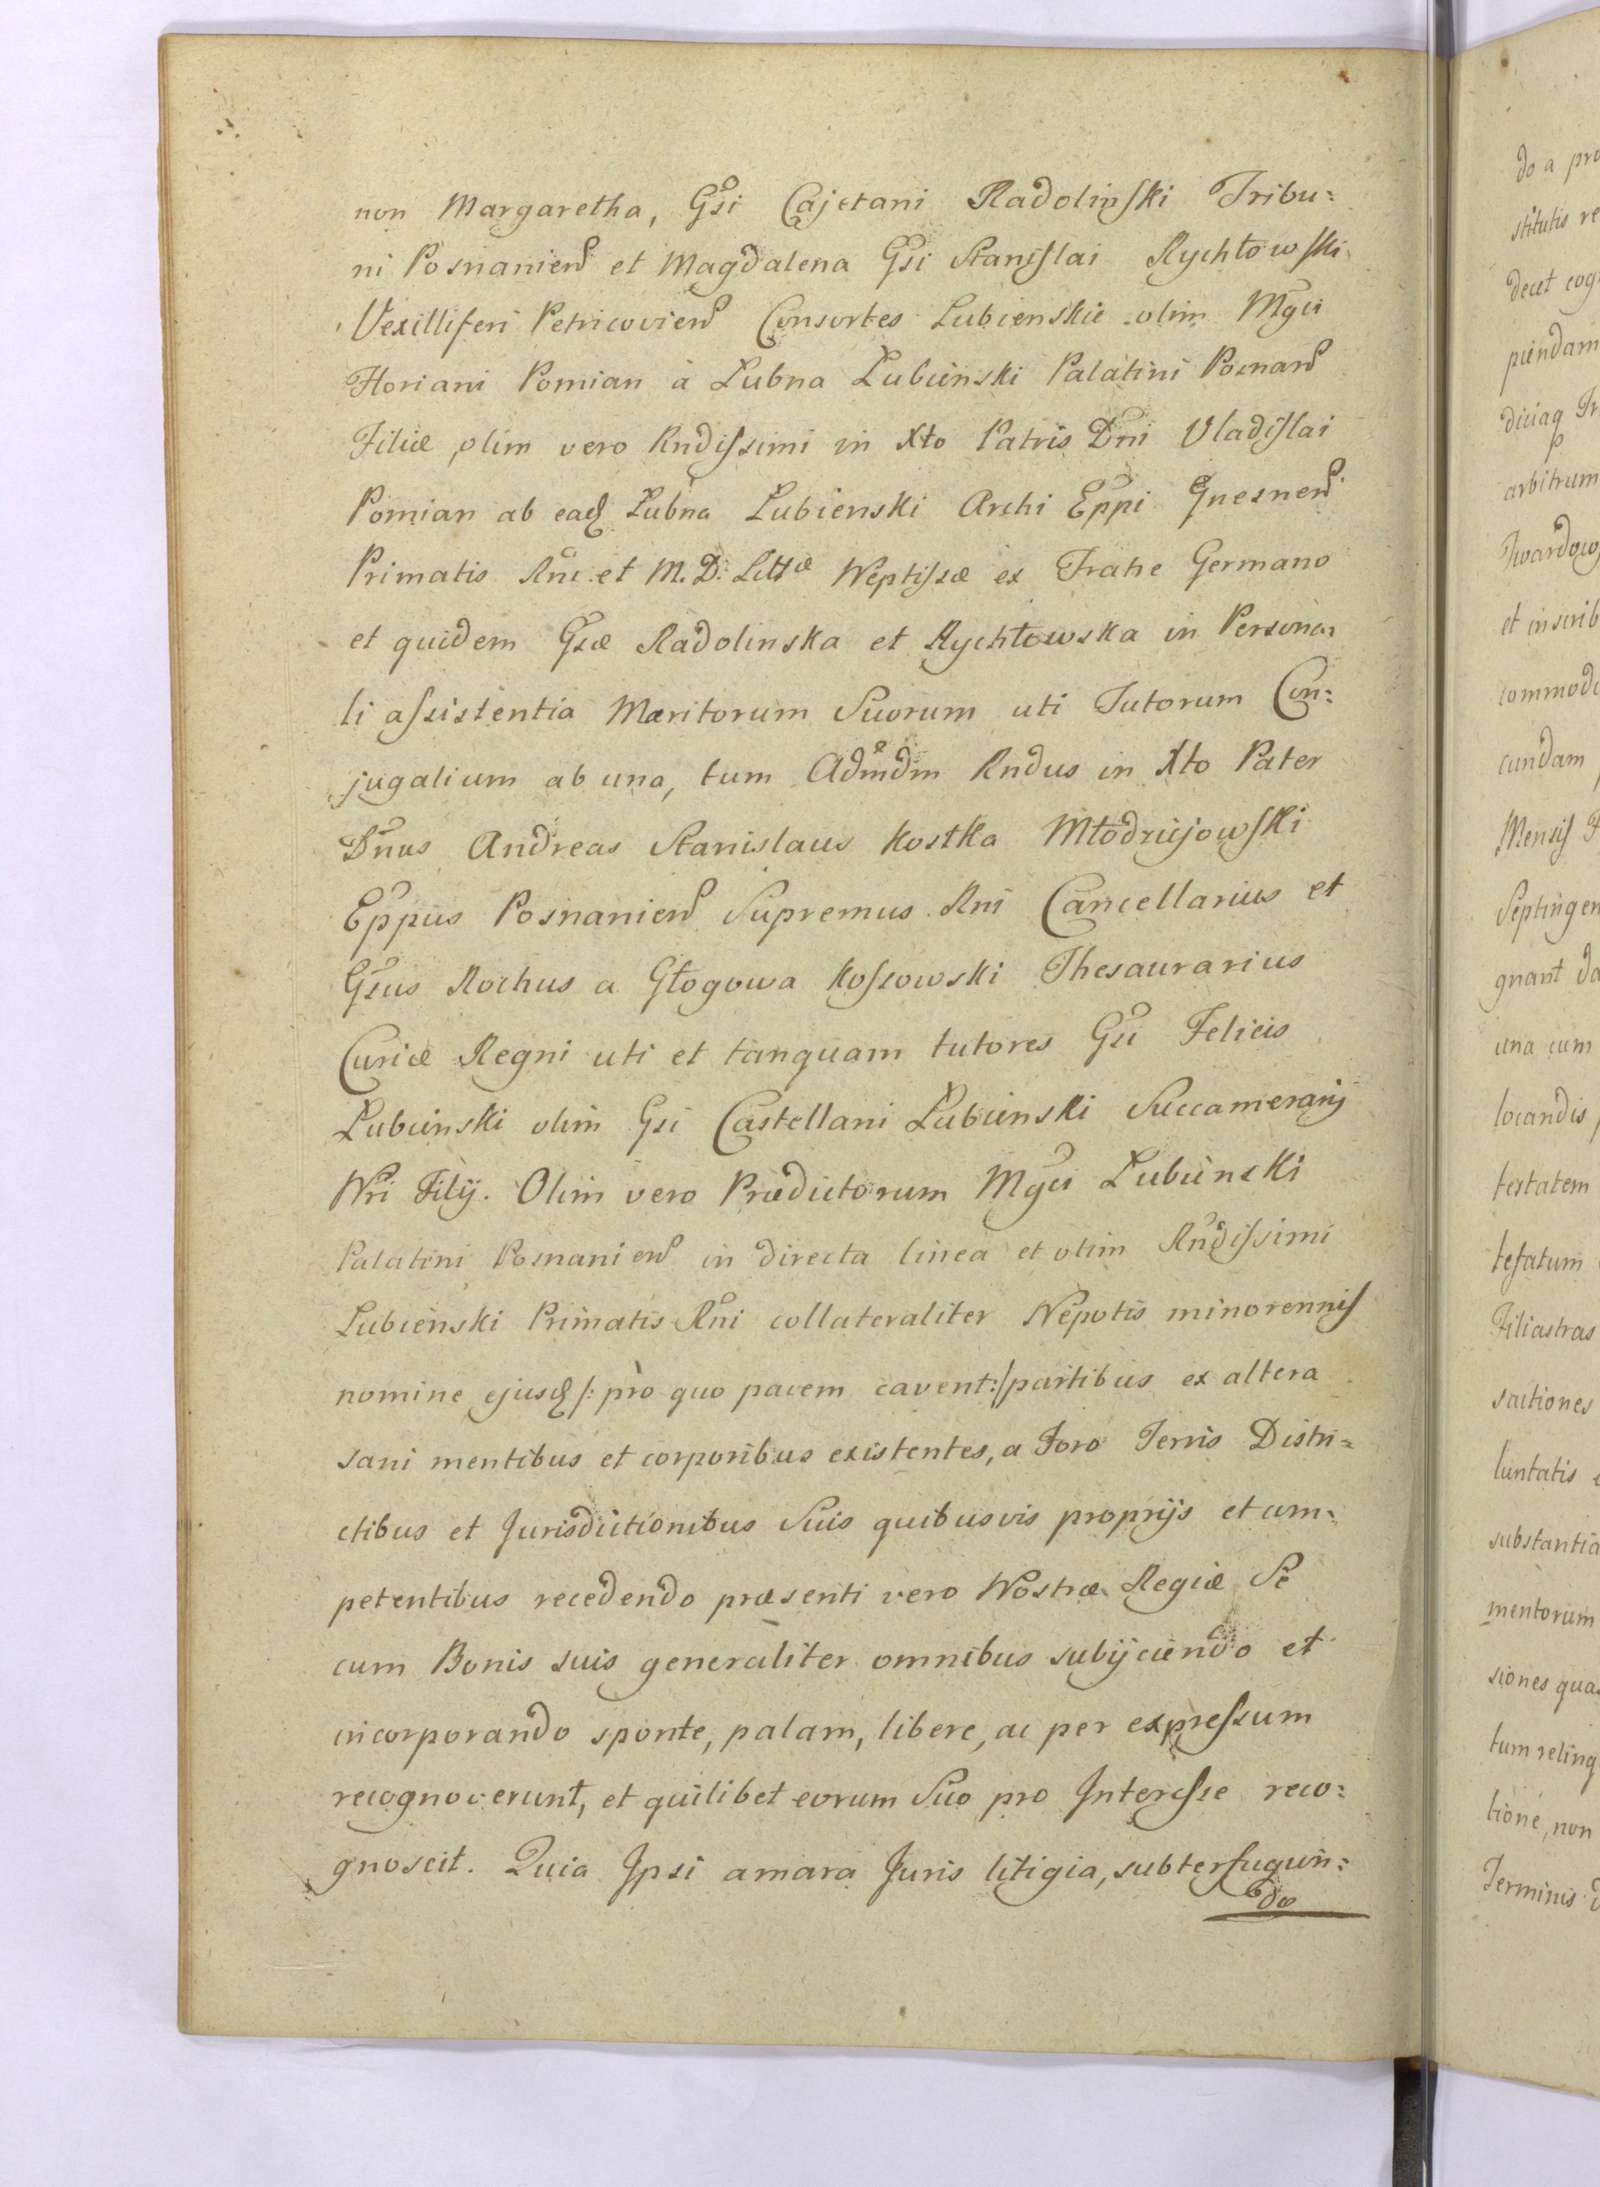 non Margaretha, Gsi Cajetani Radolinſki Tribu=
ni Posnanien et Magdalena Gsi Staniſlai Rychłowſki
Vexilliferi Petricovien Consortes Lubienskie olim Mgci
Floriani Pomian à Łubna Łubienski Palatini Posnan
Filiæ, olim vero Rndiſsimi in Xto Patris Dni Vladiſlai
Pomian ab ead Łubna Łubienski Archi Eppi Gnesnen
Primatis Rni et M. D. Littæ Neptiſsæ ex Fratre Germano
et quidem Gsæ Radolinska et Rychłowska in Persona=
li aſsistentia Maritorum Suorum uti Tutorum Con=
jugalium ab una, tum Admdm Rndus in Xto Pater
Dnus Andreas Stanislaus Kostka Młodziejowſki
Eppus Posnanien Supremus Rni Cancellarius et
Gsus Rochus a Głogowa Koſsowski Thesaurarius
Curiæ Regni uti et tanquam tutores Gsi Felicis
Łubienski olim Gsi Castellani Łubienski Succamerarij
Nri Filij. Olim vero Prædictorum Mgci Łubienski
Palatini Posnanien in directa linea et olim Rndiſsimi
Lubienski Primatis Rni collateraliter Nepotis minorenniſ
nomine ejusd /: pro quo pacem cavent :/ partibus ex altera
sani mentibus et corporibus existentes, a Foro Terris Distri=
ctibus et Jurisdictionibus Suis quibusvis proprijs et com=
petentibus recedendo præsenti vero Nostræ Regiæ Se
cum Bonis suis generaliter omnibus subijciendo et
incorporando sponte, palam, libere, ac per expreſsum
recognoverunt, et quilibet eorum Suo pro Intereſse reco=
gnoscit. Quia Ipsi amara Juris litigia, subterfugien=
do
do a pro
stitutis re
decet cog
piendam
arbitrum
et inscrib
commodo
cundam
Mensiſ F
Septingen
gnant da
una cum
locandis
testatem
Filiastras
sactiones
luntatis
substantia
mentorum
siones qua
tum relinq
tione, non
Terminis